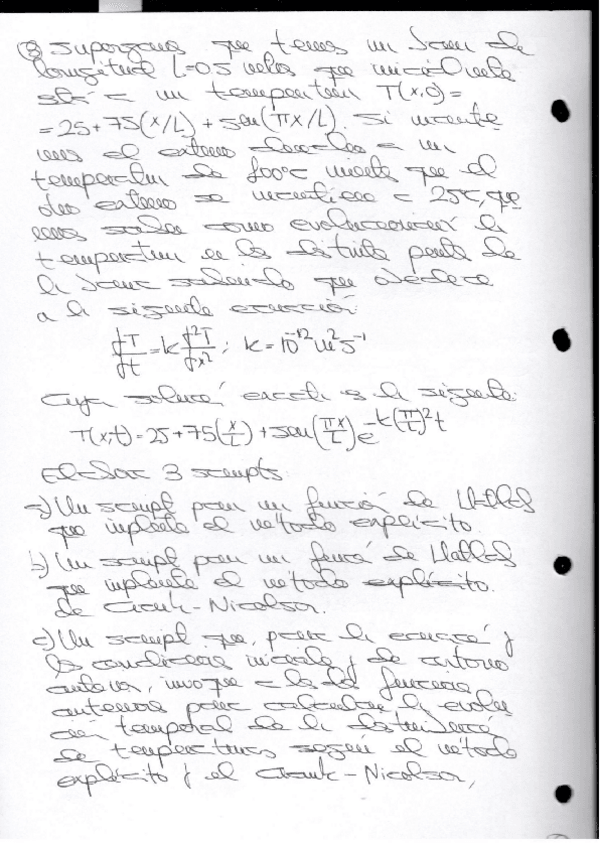 ⑧ Supongamos que tenemos un barra de
longitud L=0.5 metros que inicialmente
está a un temperatura T(x,0)=
=25+75(x/L)+sen(πx/L). Si mante
mos el extremo derecho a un
temperatura de 100ºC mientras que el
otro extremo se mantiene a 25ºC, que
remos saber como evolucionará la
temperatura en los distintos puntos de
la barra sabiendo que obedece
a la siguiente ecuación:
∂T/∂t = k ∂²T/∂x² ; k=10⁻¹² m²s⁻¹
Cuya solución exacta es la siguiente:
T(x,t)=25+75(x/L)+sen(πx/L)e^{-k(π/L)²t}
Elaborar 3 scripts:
a) Un script para un función de Matlab
que implemente el método explícito.
b) Un script para un función de Matlab
que implemente el método explícito.
de Crank-Nicolson.
c) Un script que, para la ecuación y
las condiciones iniciales y de contorno
invoque a las dos funciones
anteriores para calcular la evolu
ción temporal de la distribución
de temperaturas según el método
explícito y el Crank-Nicolson,